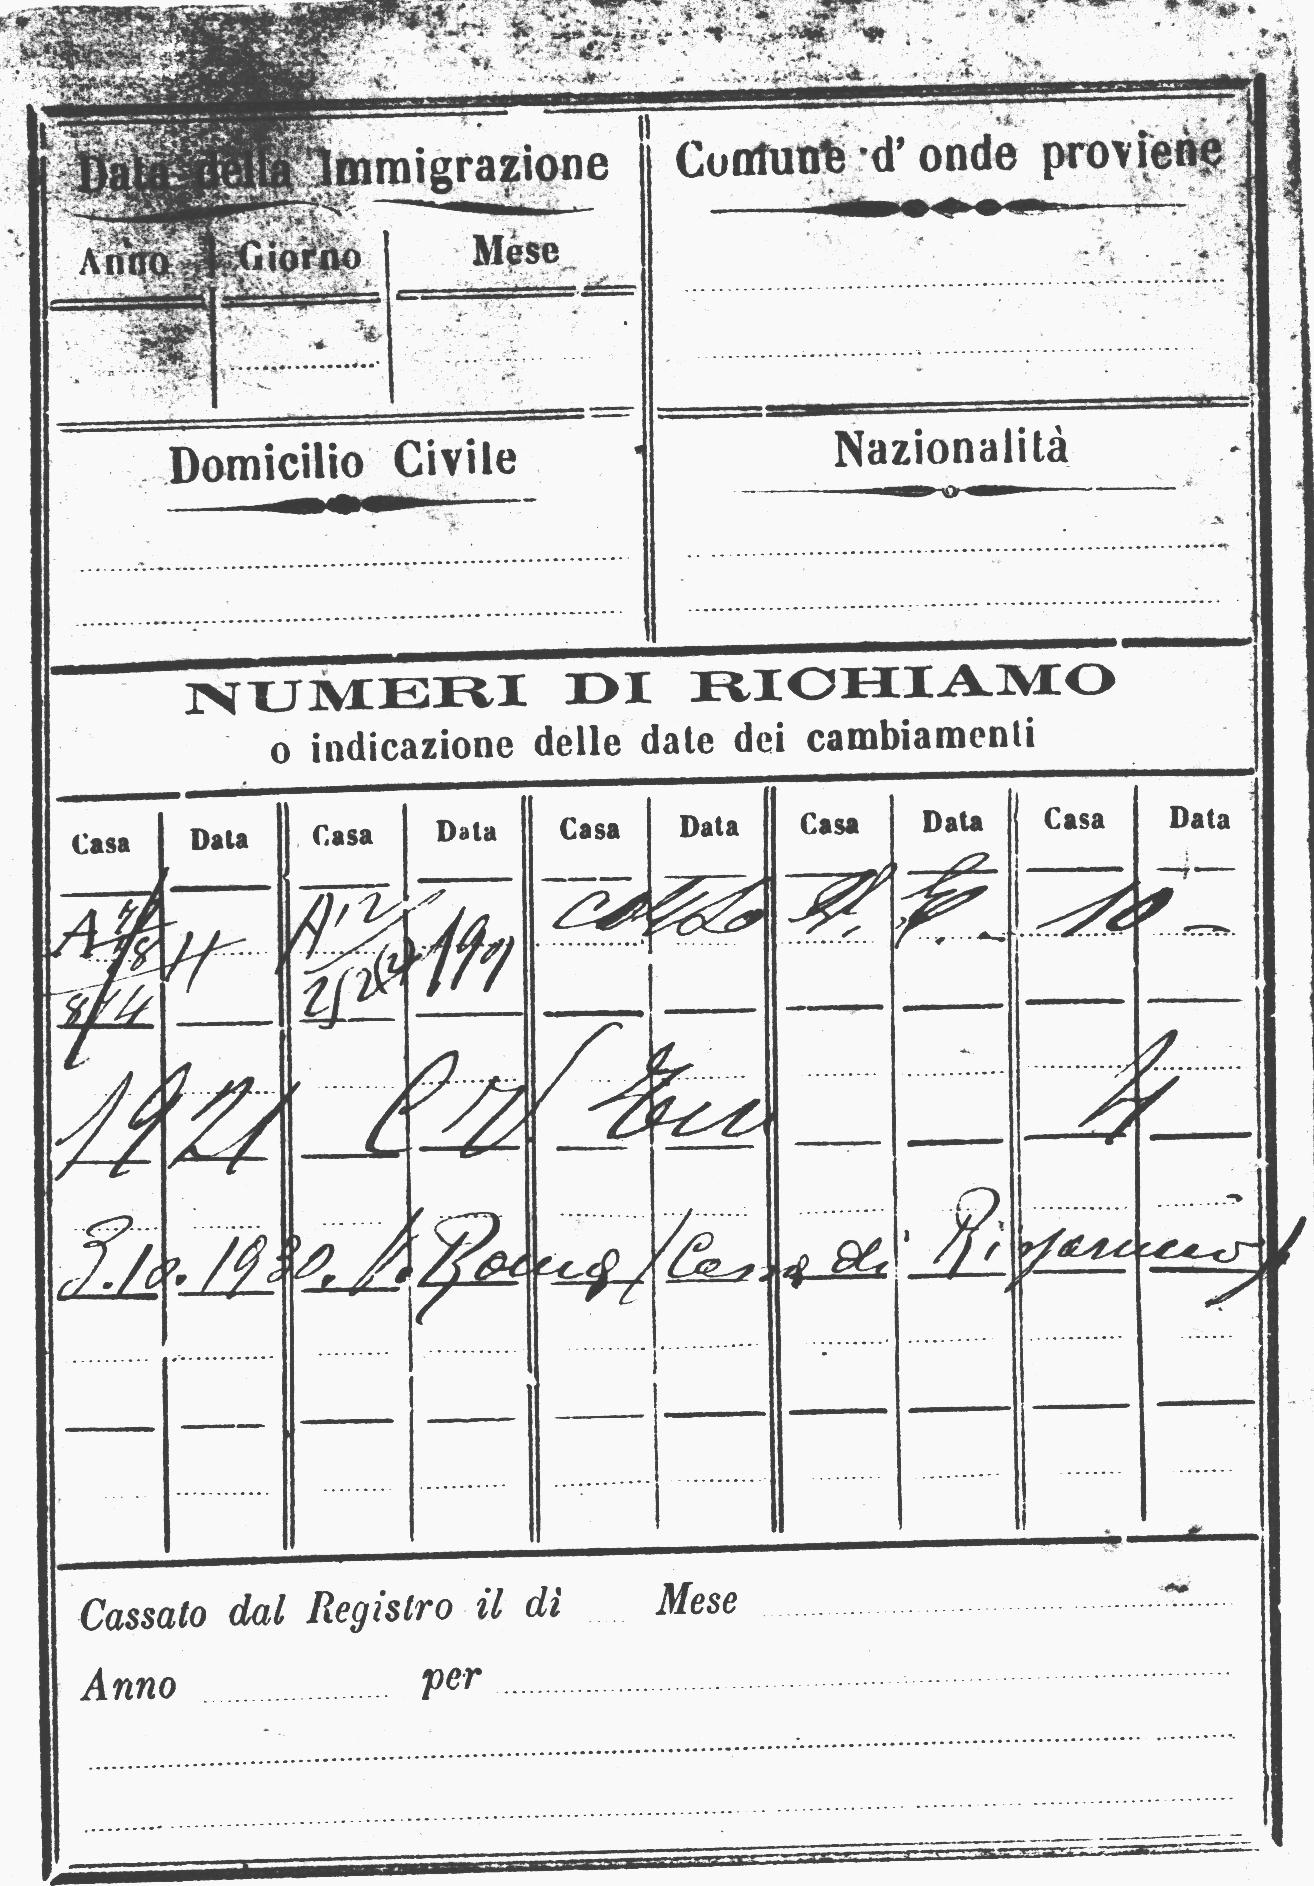 Data della Immigrazione
Anno Giorno Mese
Comune d' onde proviene
Domicilio Civile
Nazionalità
NUMERI DI RICHIAMO
o indicazione delle date dei cambiamenti
Casa Data Casa Data Casa Data Casa Data Casa Data
10
8/4
1921 4
3.10.1930. Roma / Casa di
Cassato dal Registro il dì Mese
Anno per